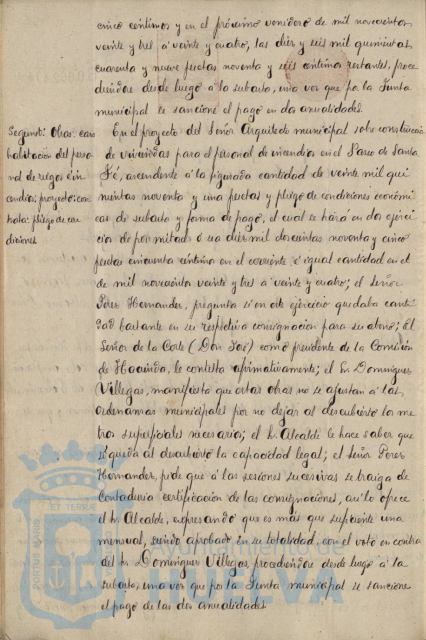 cinco centimos y en el próximo venidero de mil novecientos
veinte y tres á veinte y cuatro, las diez y seis mil quinientas
cuarenta y nueve pesetas noventa y seis centimos restantes, proce
diendose desde luego á la subasta, una vez que por la Junta
municipal se sancione el pago en dos anualidades.
Segundo: Obras: casa
habitacion del perso
nal de riegos é in
cendios; proyecto; con
trata: pliego de con
diciones
En el proyecto del Señor Arquitecto municipal sobre construccion
de viviendas para el personal de incendios en el Paseo de Santa
Fé, ascendente á la figurada cantidad de veinte mil qui
nientas noventa y una pesetas y pliego de condiciones económi
cas de subasta y forma de pago, el cual se hará en dos ejerci
cios de por mitad ó sea diez mil doscientas noventa y cinco
pesetas cincuenta centimos en el corriente, é igual cantidad en el
de mil novecientos veinte y tres á veinte y cuatro; el Señor
Perez Hernandez, pregunta si en este ejercicio quedaba canti
dad bastante en su respectiva consignacion para su abono; el
Señor de la Corte (Don José) como presidente de la Comision
de Hacienda, le contesta afirmativamente; el Sr. Dominguez
Villegas, manifiesta que estas obras no se ajustan á las
Ordenanzas municipales por no dejar al descubierto los me
tros superficiales necesarios; el Sr. Alcalde le hace saber que
se queda al descubierto la capacidad legal; el Señor Perez
Hernandez, pide que á las sesiones sucesivas se traiga de
Contaduria certificacion de las consignaciones, asi lo ofrece
el Sr. Alcalde, expresando que es más que suficiente una
mensual, siendo aprobado en su totalidad, con el voto en contra
del Sr. Dominguez Villegas, procediendose desde luego á la
subasta, una vez que por la Junta municipal se sancione
el pago de las dos anualidades.
Ayuntamiento de
HUELVA
PORTUS MARIS
ET TERRÆ